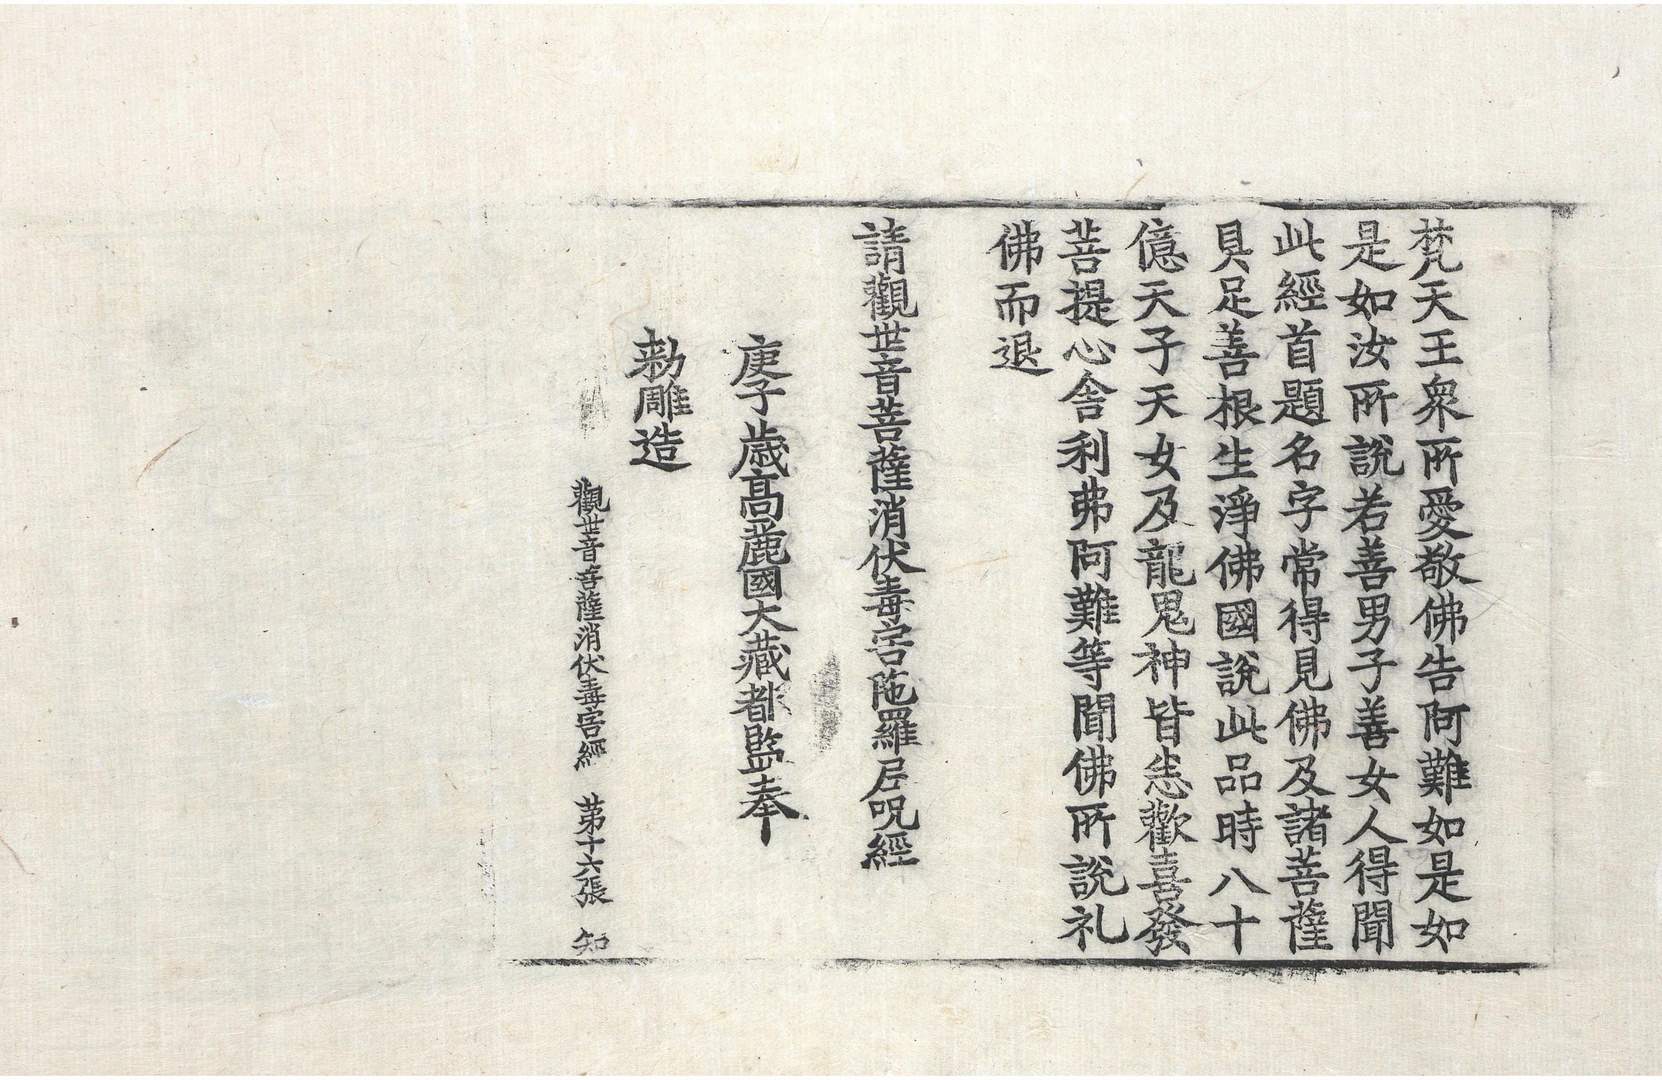 梵天王衆所愛敬佛告阿難如是如
是如汝所說若善男子善女人得聞
此經首題名字常得見佛及諸菩薩
具足善根生淨佛國說此品時八十
億天子天女及龍鬼神皆悉歡喜發
菩提心舍利弗阿難等聞佛所說礼
佛而退
請觀世音菩薩消伏毒害陁羅尼呪經
庚子歲高麗國大藏都監奉
勑雕造
觀世音菩薩消伏毒害經 苐十六張 知